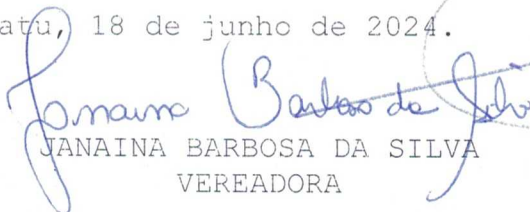 atu, 18 de junho de 2024.
Janaina Barbosa da Silva
JANAINA BARBOSA DA SILVA
VEREADORA